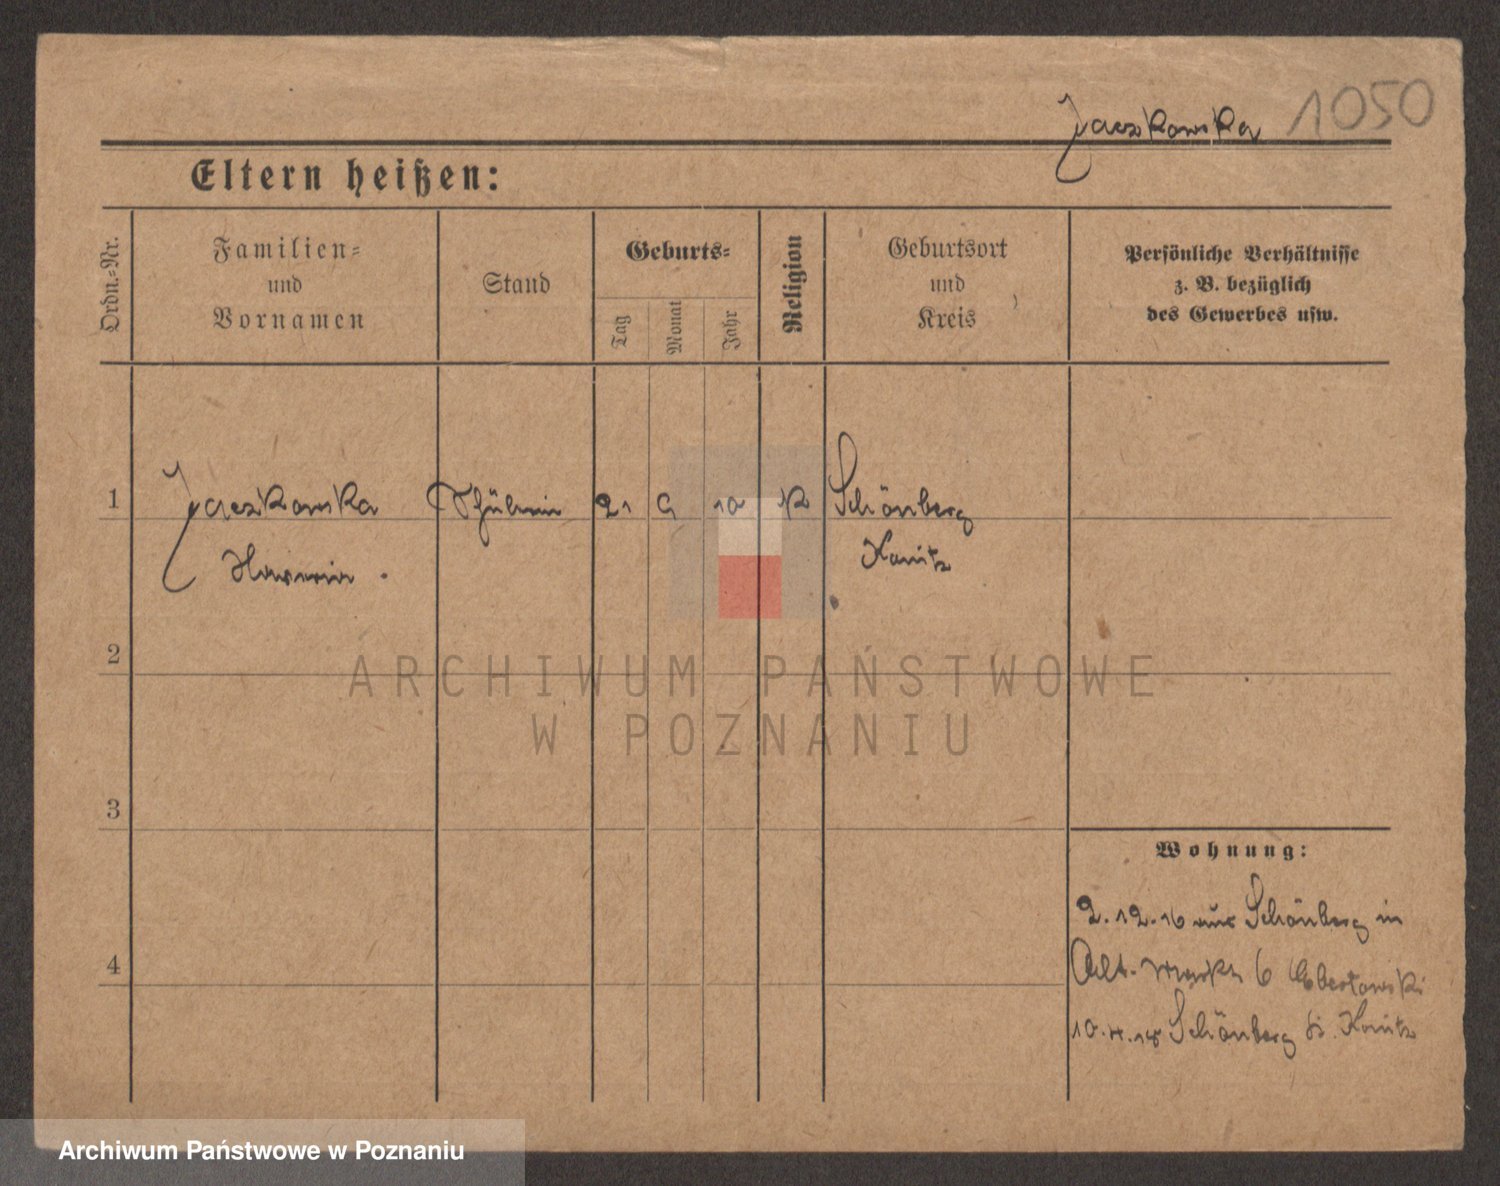 Jaczkowska 1050
Eltern heißen:
Ordn.-Nr.
Familien-
und
Vornamen
Stand
Geburts-
Tag
Monat
Jahr
Religion
Geburtsort
und
Kreis
Persönliche Verhältnisse
z. B. bezüglich
des Gewerbes usw.
1 Jaczkowska Schülerin 21 9 K Schönberg
Konitz
2
ARCHIWUM PAŃSTWOWE
W POZNANIU
3
Wohnung:
2.12.16 aus Schönberg in
4 Alt. Markt 6
Schönberg b. Konitz
Archiwum Państwowe w Poznaniu